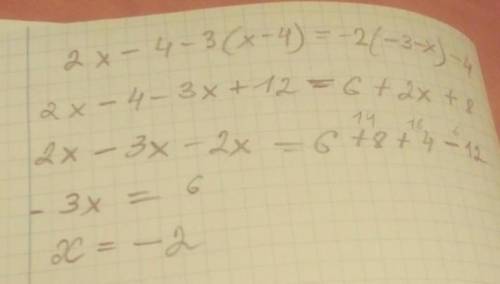 2x - 4 - 3(x-4) = -2(-3-x) - 4
2x - 4 - 3x + 12 = 6 + 2x + 8
14 18 6
2x - 3x - 2x = 6 + 8 + 4 - 12
- 3x = 6
x = -2